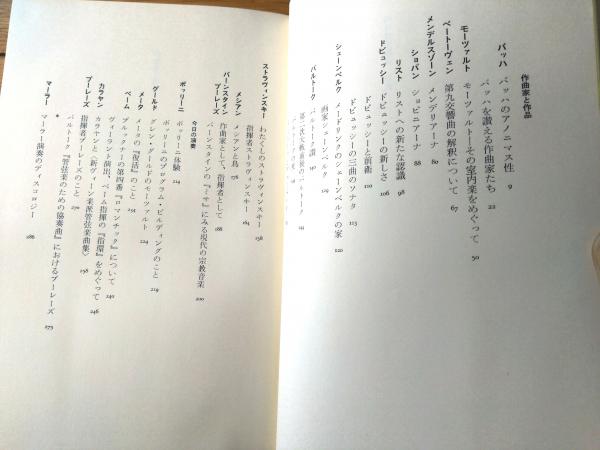 作曲家と作品
バッハ
バッハのアノニマス性 9
バッハを讃える作曲家たち 22
モーツァルト
モーツァルト―その室内楽をめぐって 50
ベートーヴェン
第九交響曲の解釈について 67
メンデルスゾーン
メンデリアーナ 80
ショパン
ショピニアーナ 88
リスト
リストへの新たな認識 98
ドビュッシー
ドビュッシーの新しさ 106
ドビュッシーと前衛 110
ドビュッシーの三曲のソナタ
シェーンベルク
メードリンクのシェーンベルクの家 120
画家シェーンベルク
バルトーク
バルトーク讃 140
第二次大戦直後のバルトーク
ストラヴィンスキー
わたくしのストラヴィンスキー 156
指揮者ストラヴィンスキー 164
メシアン
メシアンと鳥 176
ブーレーズ
作曲家として、指揮者として 188
バーンスタイン
バーンスタインの『ミサ』にみる現代の宗教音楽 200
今日の演奏
ポッリーニ
ポッリーニ体験 214
ポッリーニのプログラム・ビルディングのこと 219
グールド
グレン・グールドのモーツァルト 224
メータ
メータの『復活』のこと 231
ベーム
ブルックナーの第四番『ロマンチック』について 240
ヴィーラント演出、ベーム指揮の『指環』をめぐって 246
カラヤン
カラヤンと〈新ヴィーン楽派管弦楽曲集〉 258
ブーレーズ
指揮者ブーレーズのこと 270
バルトーク『管弦楽のための協奏曲』におけるブーレーズ 275
*
マーラー
マーラー演奏のディスコロジー 286